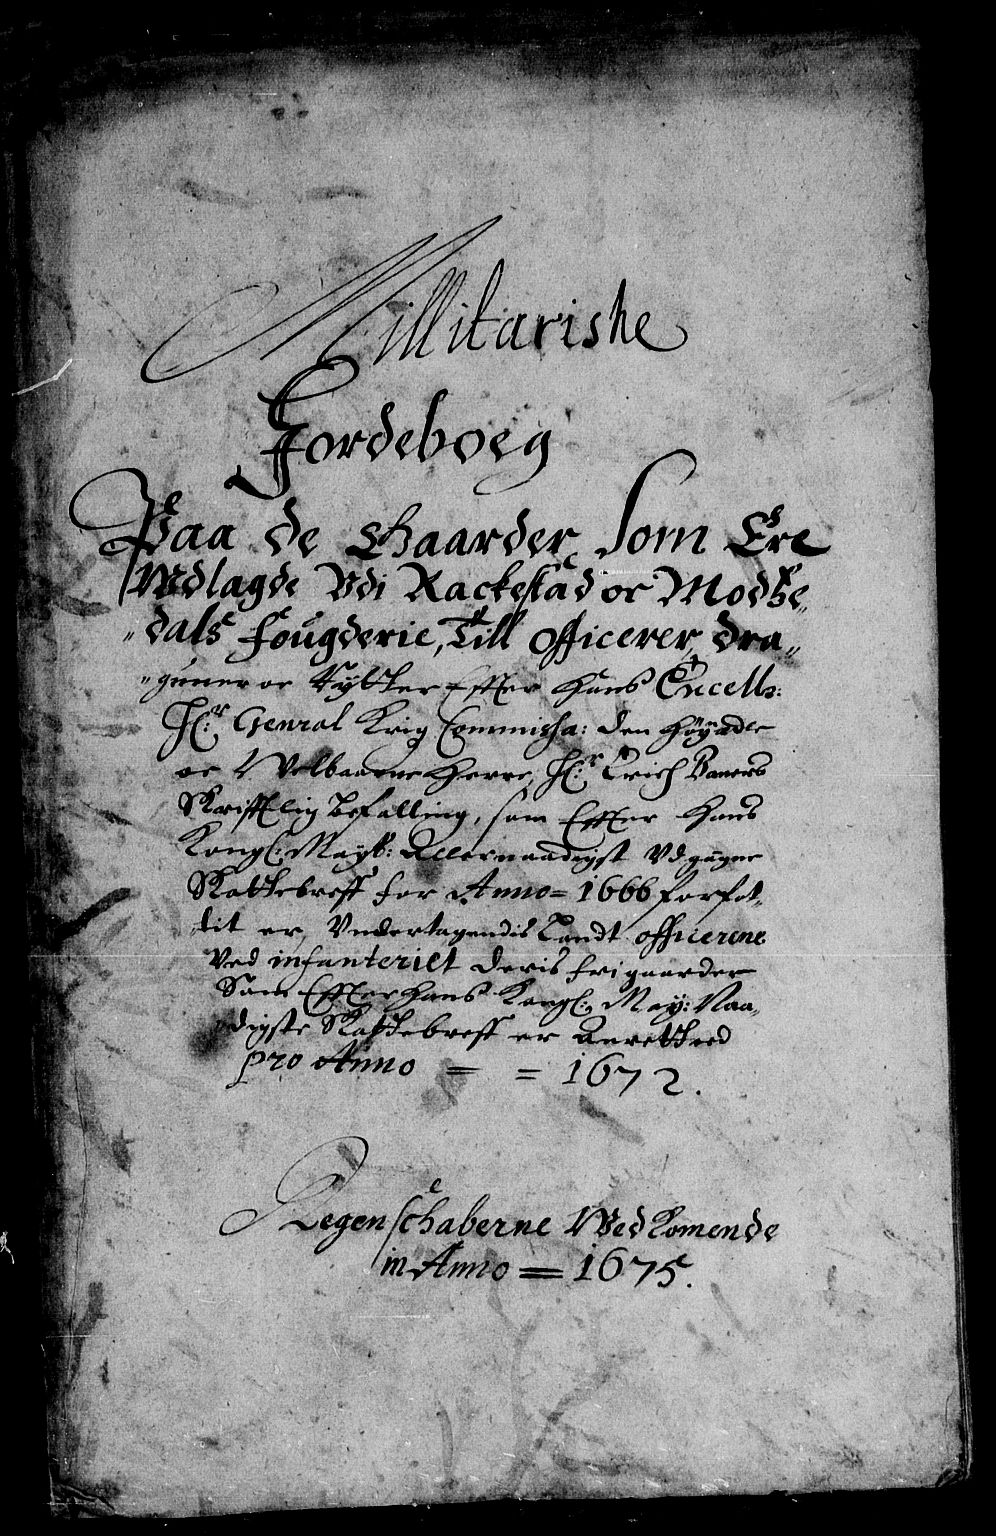 Millitariske
Jordeboeg
Paa de Gaarder, som Ere
Udlagde Udi Rackestad oc Modße„
„dals Fougderie, Till officerer, dra„
„guner oc Rytter Effter Hans Excell:
Hr: General Krig Commissa: den höyædle
oc Welbaarne Herre, Hr: Erich Baners
Skrifftlig befalling, som Effter Hans
Kongl: Mayt: Allernaadigst Udgangne
Skattebreff for Anno = 1666 forfat„
tit er, Undertagendis Landt officerene
Ved infanteriet deris frigaarder
Som Effter Hans Kongl: May: Naa„
digste Skattebreff er Anrettet
pro Anno = = 1672.
Regenschaberne Wedkomende
in Anno = 1675.